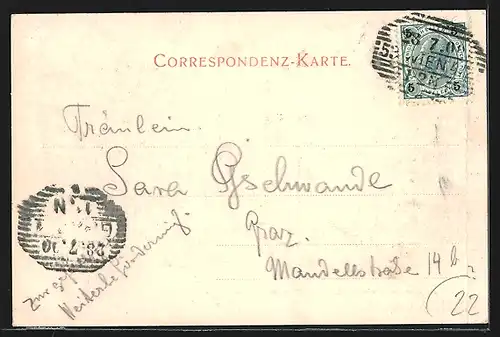 CORRESPONDENZ-KARTE.
23 7.0
WIEN
5 5
Fräulein
Sara Gschwande
Graz.
Mandellstraße 14
zur gefl
Weiterbeförderung.
22